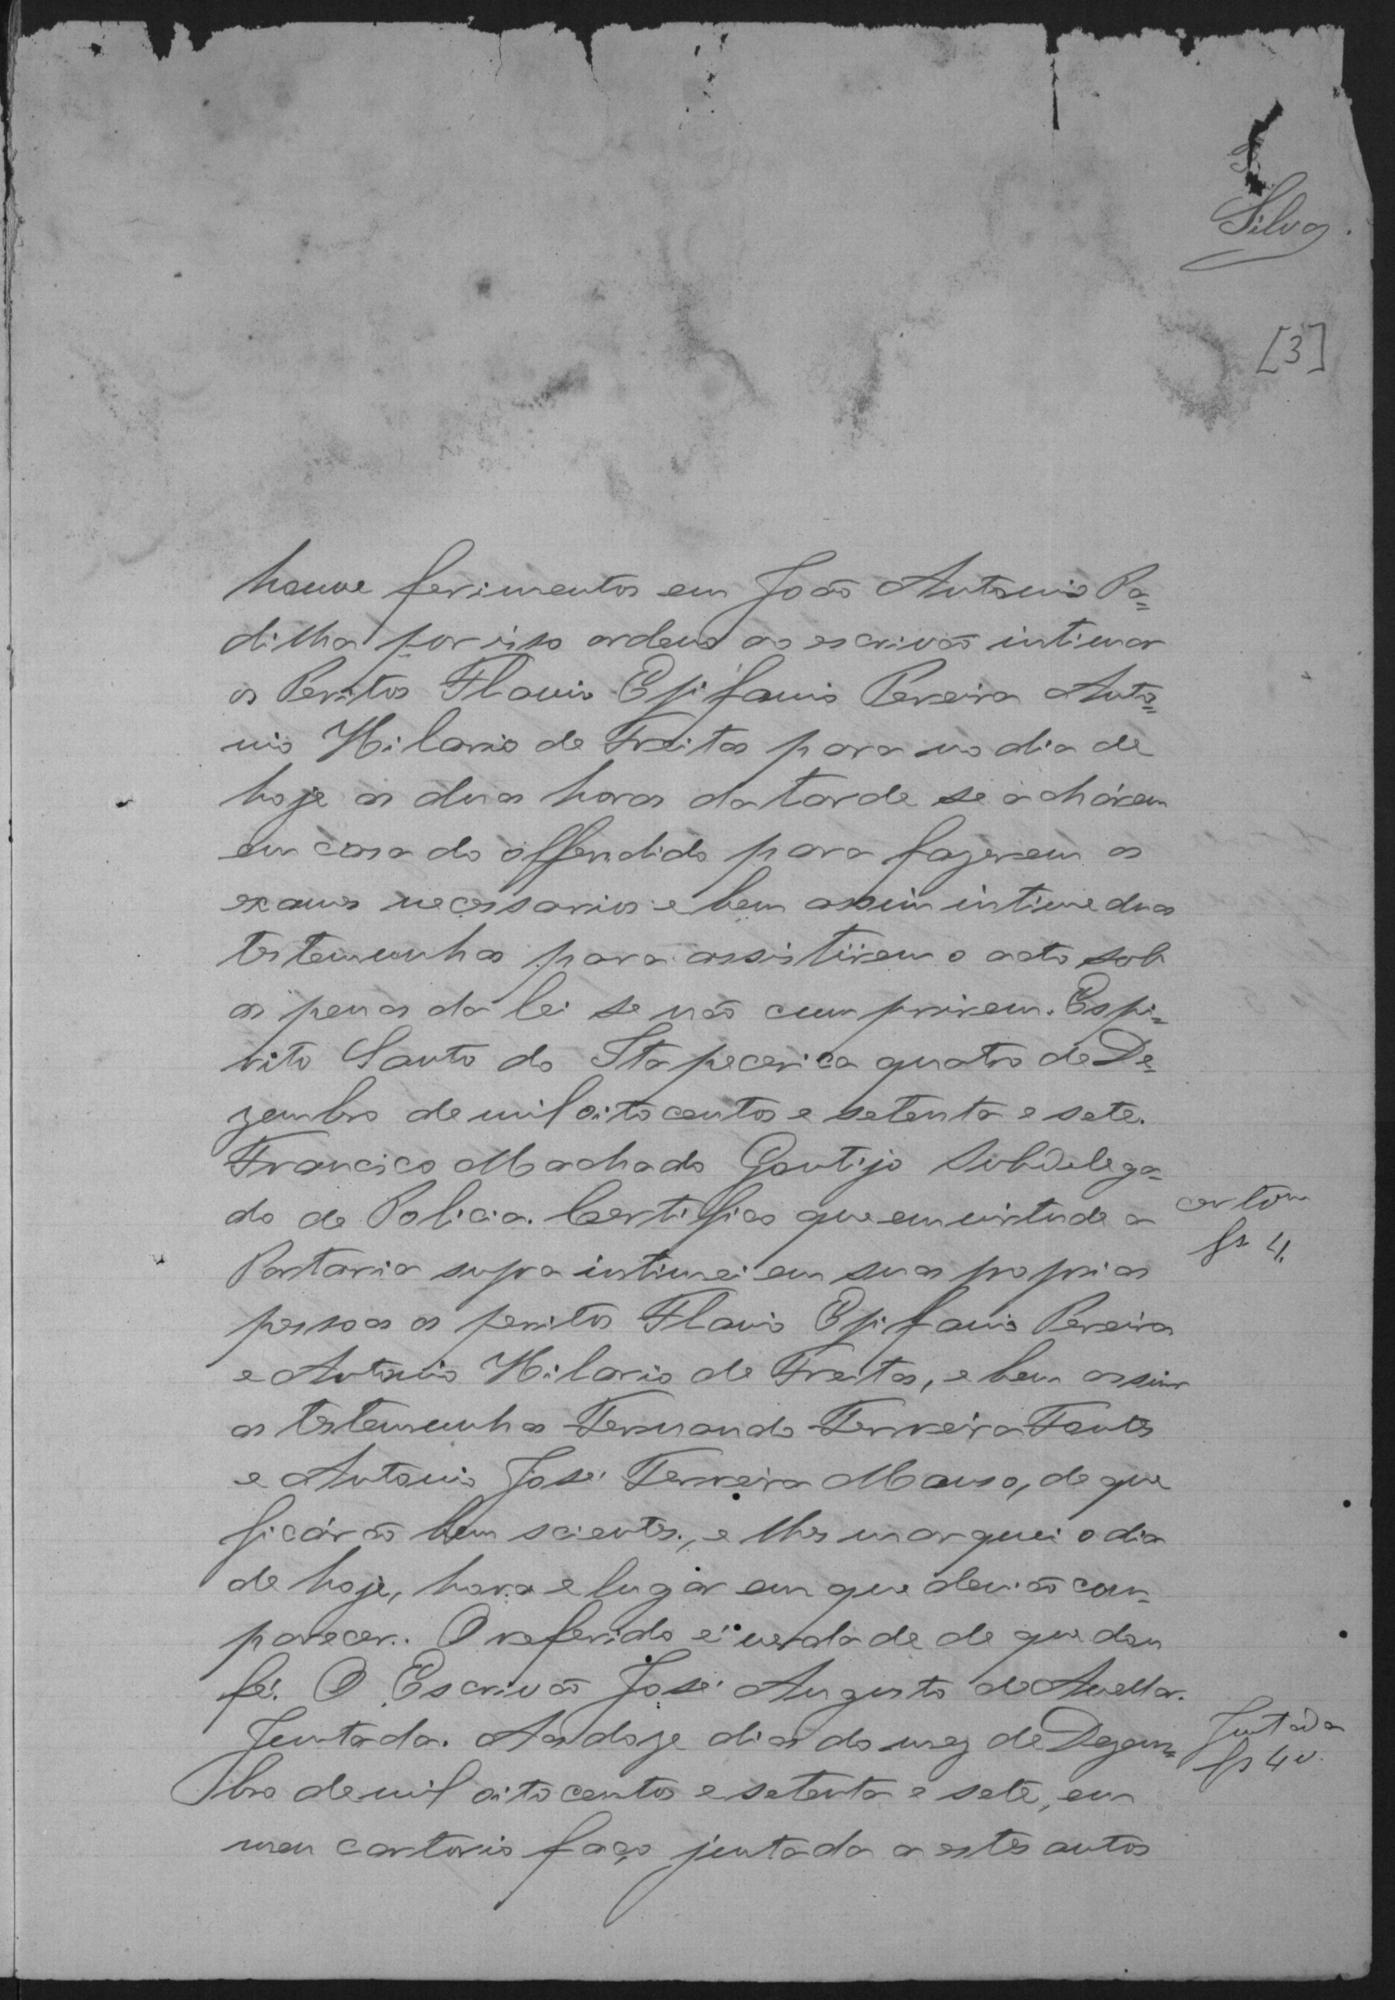 3
Silva
[3]
houve ferimentos em João Antonio Pa=
dilha por isso ordeno ao escrivão intimar
os Peritos Flavio Epifanio Pereira Anto=
nio Hilario de Freitas para no dia de
hoje as duas horas da tarde se achárem
em casa do offendido para fazerem os
exames necessarios e bem assim intime duas
testemunhas para assistirem o acto sob
as penas da lei se não cumprirem. Espi=
rito Santo do Itapecerica quatro de De=
zembro de mil oitocentos e setenta e sete.
Francisco Machado Gontijo Subdelega=
do de Policia. Certifico que em virtude a
certõm
fs 4.
Portaria supra intimei em suas proprias
pessoas os peritos Flavio Epifanio Pereira
e Antonio Hilario de Freitas, e bem assim
as testemunhas Fernando Ferreira Fontes
e Antonio José Ferreira Manso, de que
ficárão bem scientes, e lhes marquei o dia
de hoje, hora e lugar em que devião com=
parecer. O referido é verdade de que dou
fé. O Escrivão José Augusto de Avellar.
Juntada. Aos doze dias do mez de Dezem=
Juntada
fs 4 v.
bro de mil oitocentos e setenta e sete, em
meu cartorio faço juntada a estes autos